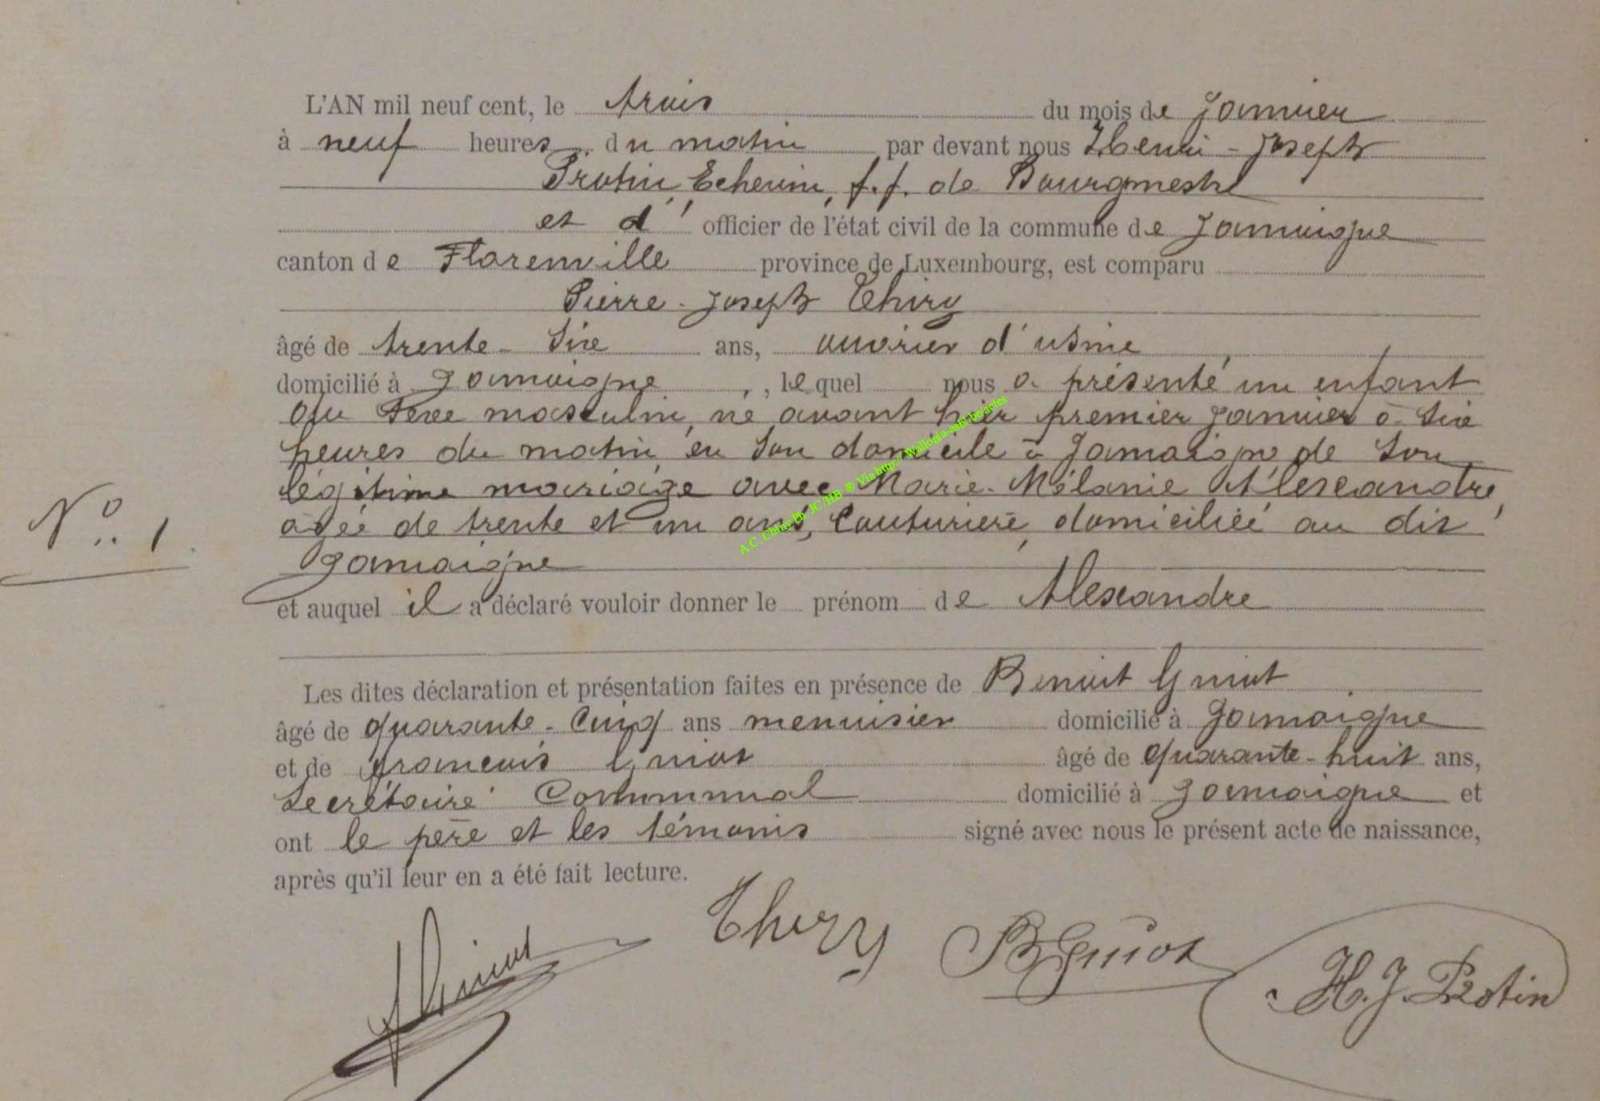 L'AN mil neuf cent, le trois du mois de Janvier
à neuf heures du matin par devant nous Henri-Joseph
Protin, Echevin, f.f. de Bourgmestre
et d' officier de l'état civil de la commune de Jamoigne
canton de Florenville province de Luxembourg, est comparu
Pierre-Joseph Thiry
âgé de trente-six ans, ouvrier d'usine
domicilié à Jamoigne, lequel nous a présenté un enfant
du sexe masculin, né avant hier premier Janvier à six
heures du matin en son domicile à Jamoigne de son
légitime mariage avec Marie-Mélanie Alexandre,
âgée de trente et un ans, Couturière, domiciliée au dit
Jamoigne
N° 1
et auquel il a déclaré vouloir donner le prénom de Alexandre
Les dites déclaration et présentation faites en présence de Benoit Guiot
âgé de quarante-cinq ans menuisier domicilié à Jamoigne
et de François Guiot âgé de quarante-huit ans,
Secrétaire Communal domicilié à Jamoigne et
ont le père et les témoins signé avec nous le présent acte de naissance,
après qu'il leur en a été fait lecture.
f Guiot Thiry B Guiot H.J. Protin